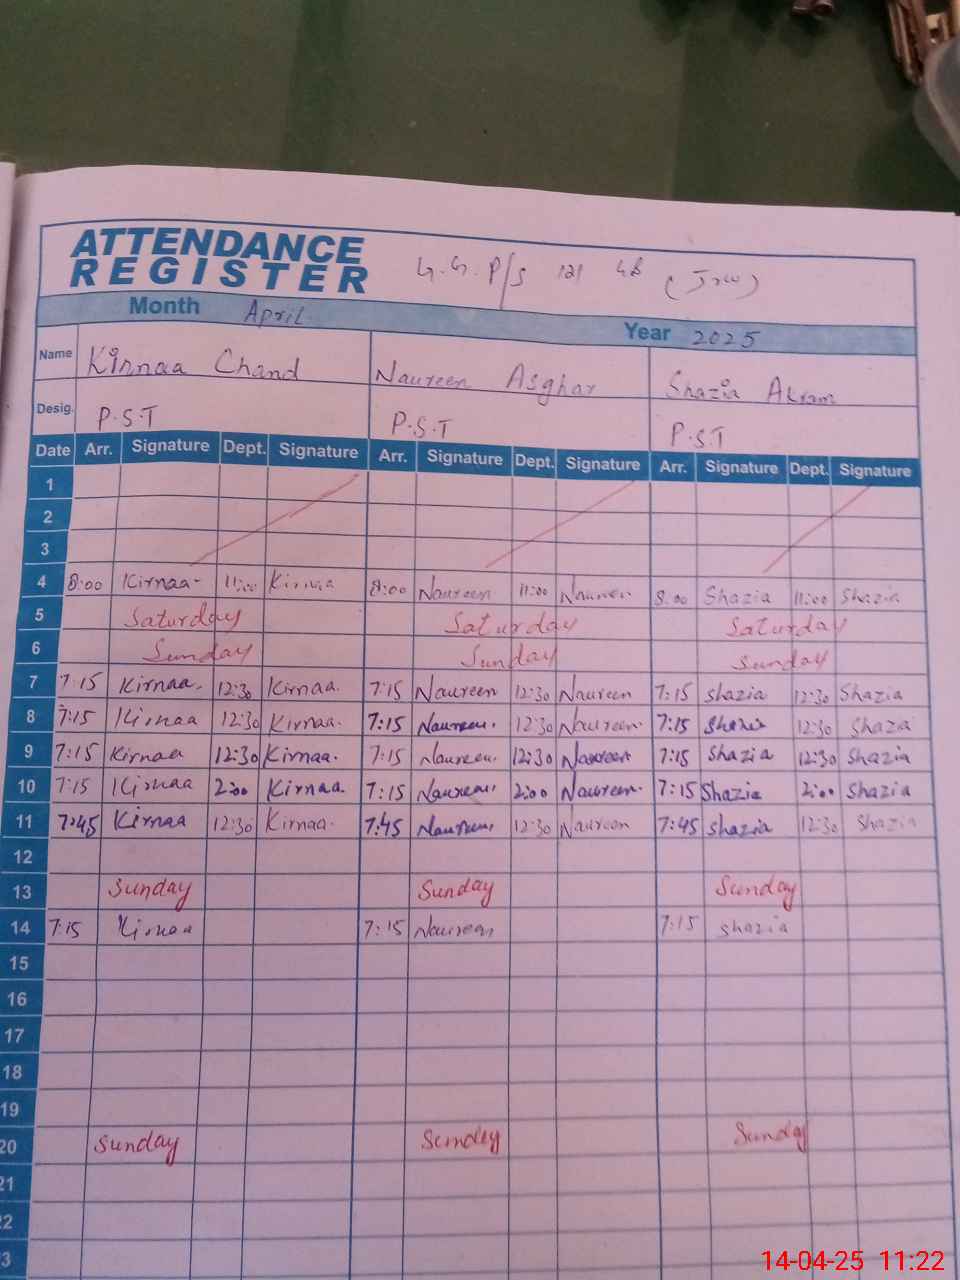 ATTENDANCE
REGISTER
G.G. P/S 121 GB (Jrw)
Month April Year 2025
Name Kirnaa Chand Naureen Asghar Shazia Akram
Desig. P.S.T P.S.T P.S.T
Date Arr. Signature Dept. Signature Arr. Signature Dept. Signature Arr. Signature Dept. Signature
1
2
3
4 8:00 Kirnaa 11:00 Kirnaa 8:00 Naureen 11:00 Naureen 8:00 Shazia 11:00 Shazia
5 Saturday Saturday Saturday
6 Sunday Sunday Sunday
7 7:15 Kirnaa. 12:30 Kirnaa. 7:15 Naureen 12:30 Naureen 7:15 Shazia 12:30 Shazia
8 7:15 Kirnaa 12:30 Kirnaa. 7:15 Naureen. 12:30 Naureen 7:15 Shazia 12:30 Shazia
9 7:15 Kirnaa 12:30 Kirnaa. 7:15 Naureen. 12:30 Naureen 7:15 Shazia 12:30 Shazia
10 7:15 Kirnaa 2:00 Kirnaa. 7:15 Naureen. 2:00 Naureen. 7:15 Shazia 2:00 Shazia
11 7:45 Kirnaa 12:30 Kirnaa. 7:45 Naureen. 12:30 Naureen 7:45 Shazia 12:30 Shazia
12
13 Sunday Sunday Sunday
14 7:15 Kirnaa 7:15 Naureen 7:15 Shazia
15
16
17
18
19
20 Sunday Sunday Sunday
21
22
23
14-04-25 11:22